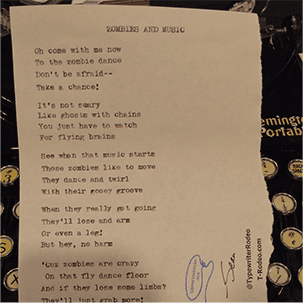 ZOMBIES AND MUSIC
Oh come with me now
To the zombie dance
Don't be afraid--
Take a chance!
It's not scary
Like ghosts with chains
You just have to watch
For flying brains
See when that music starts
Those zombies like to move
They dance and twirl
With their gooey groove
When they really get going
They'll lose and arm
Or even a leg!
But hey, no harm
'Coz zombies are crazy
On that dance floor
And if they lose some limbs?
They'll just grab more!
@TypewriterRodeo
T-Rodeo.com
Remington
Portable